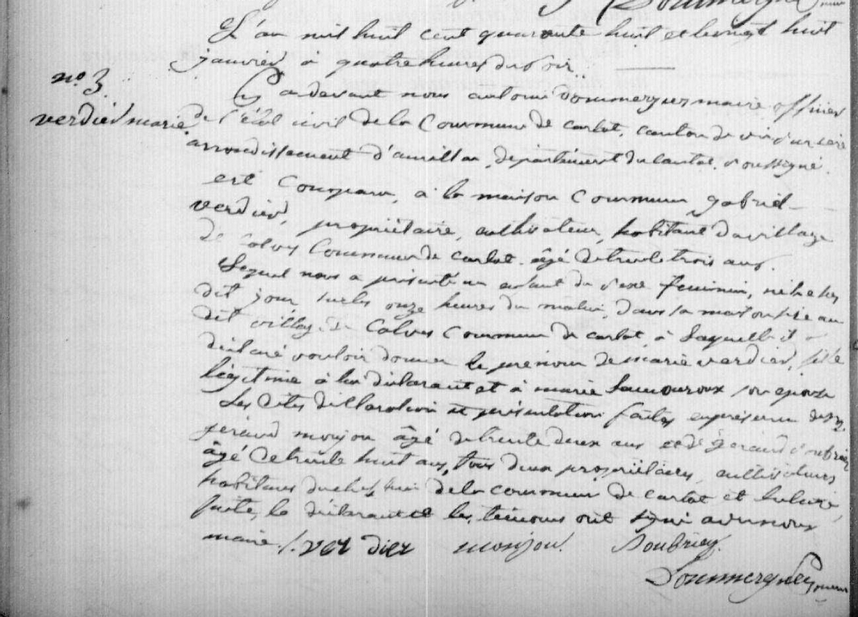 L'an mil huit cent quarante huit et le vingt huit
janvier à quatre heures du soir.
n° 3.
verdier marie
Par devant nous antoine Doummergues maire officier
de l'état civil de la Commune de carlat, canton de vic sur cère
arrondissement d'aurillac, département du cantal, soussigné.
est Comparu, à la maison Commune gabriel
verdier, propriétaire, cultivateur, habitant du village
de Calves Commune de carlat, âgé de trente trois ans.
Lequel nous a présenté un enfant du sexe féminin, né le
dit jour sur les onze heures du matin, dans sa maison sise au
dit village de Calves Commune de carlat, à laquelle il a
déclaré vouloir donner le prénom de marie verdier, fille
légitime à lui déclarant et à marie Lamouroux son épouse
Les dites déclaration et présentation faites en présence de
géraud monjou âgé de trente deux ans et de géraud Soubrier
âgé de trente huit ans, tous deux propriétaires, cultivateurs
habitans du chef lieu de la commune de carlat et lecture
faite, le déclarant et les témoins ont signé avec nous
maire /. verdier monjou. Soubrier.
Doummergues, maire